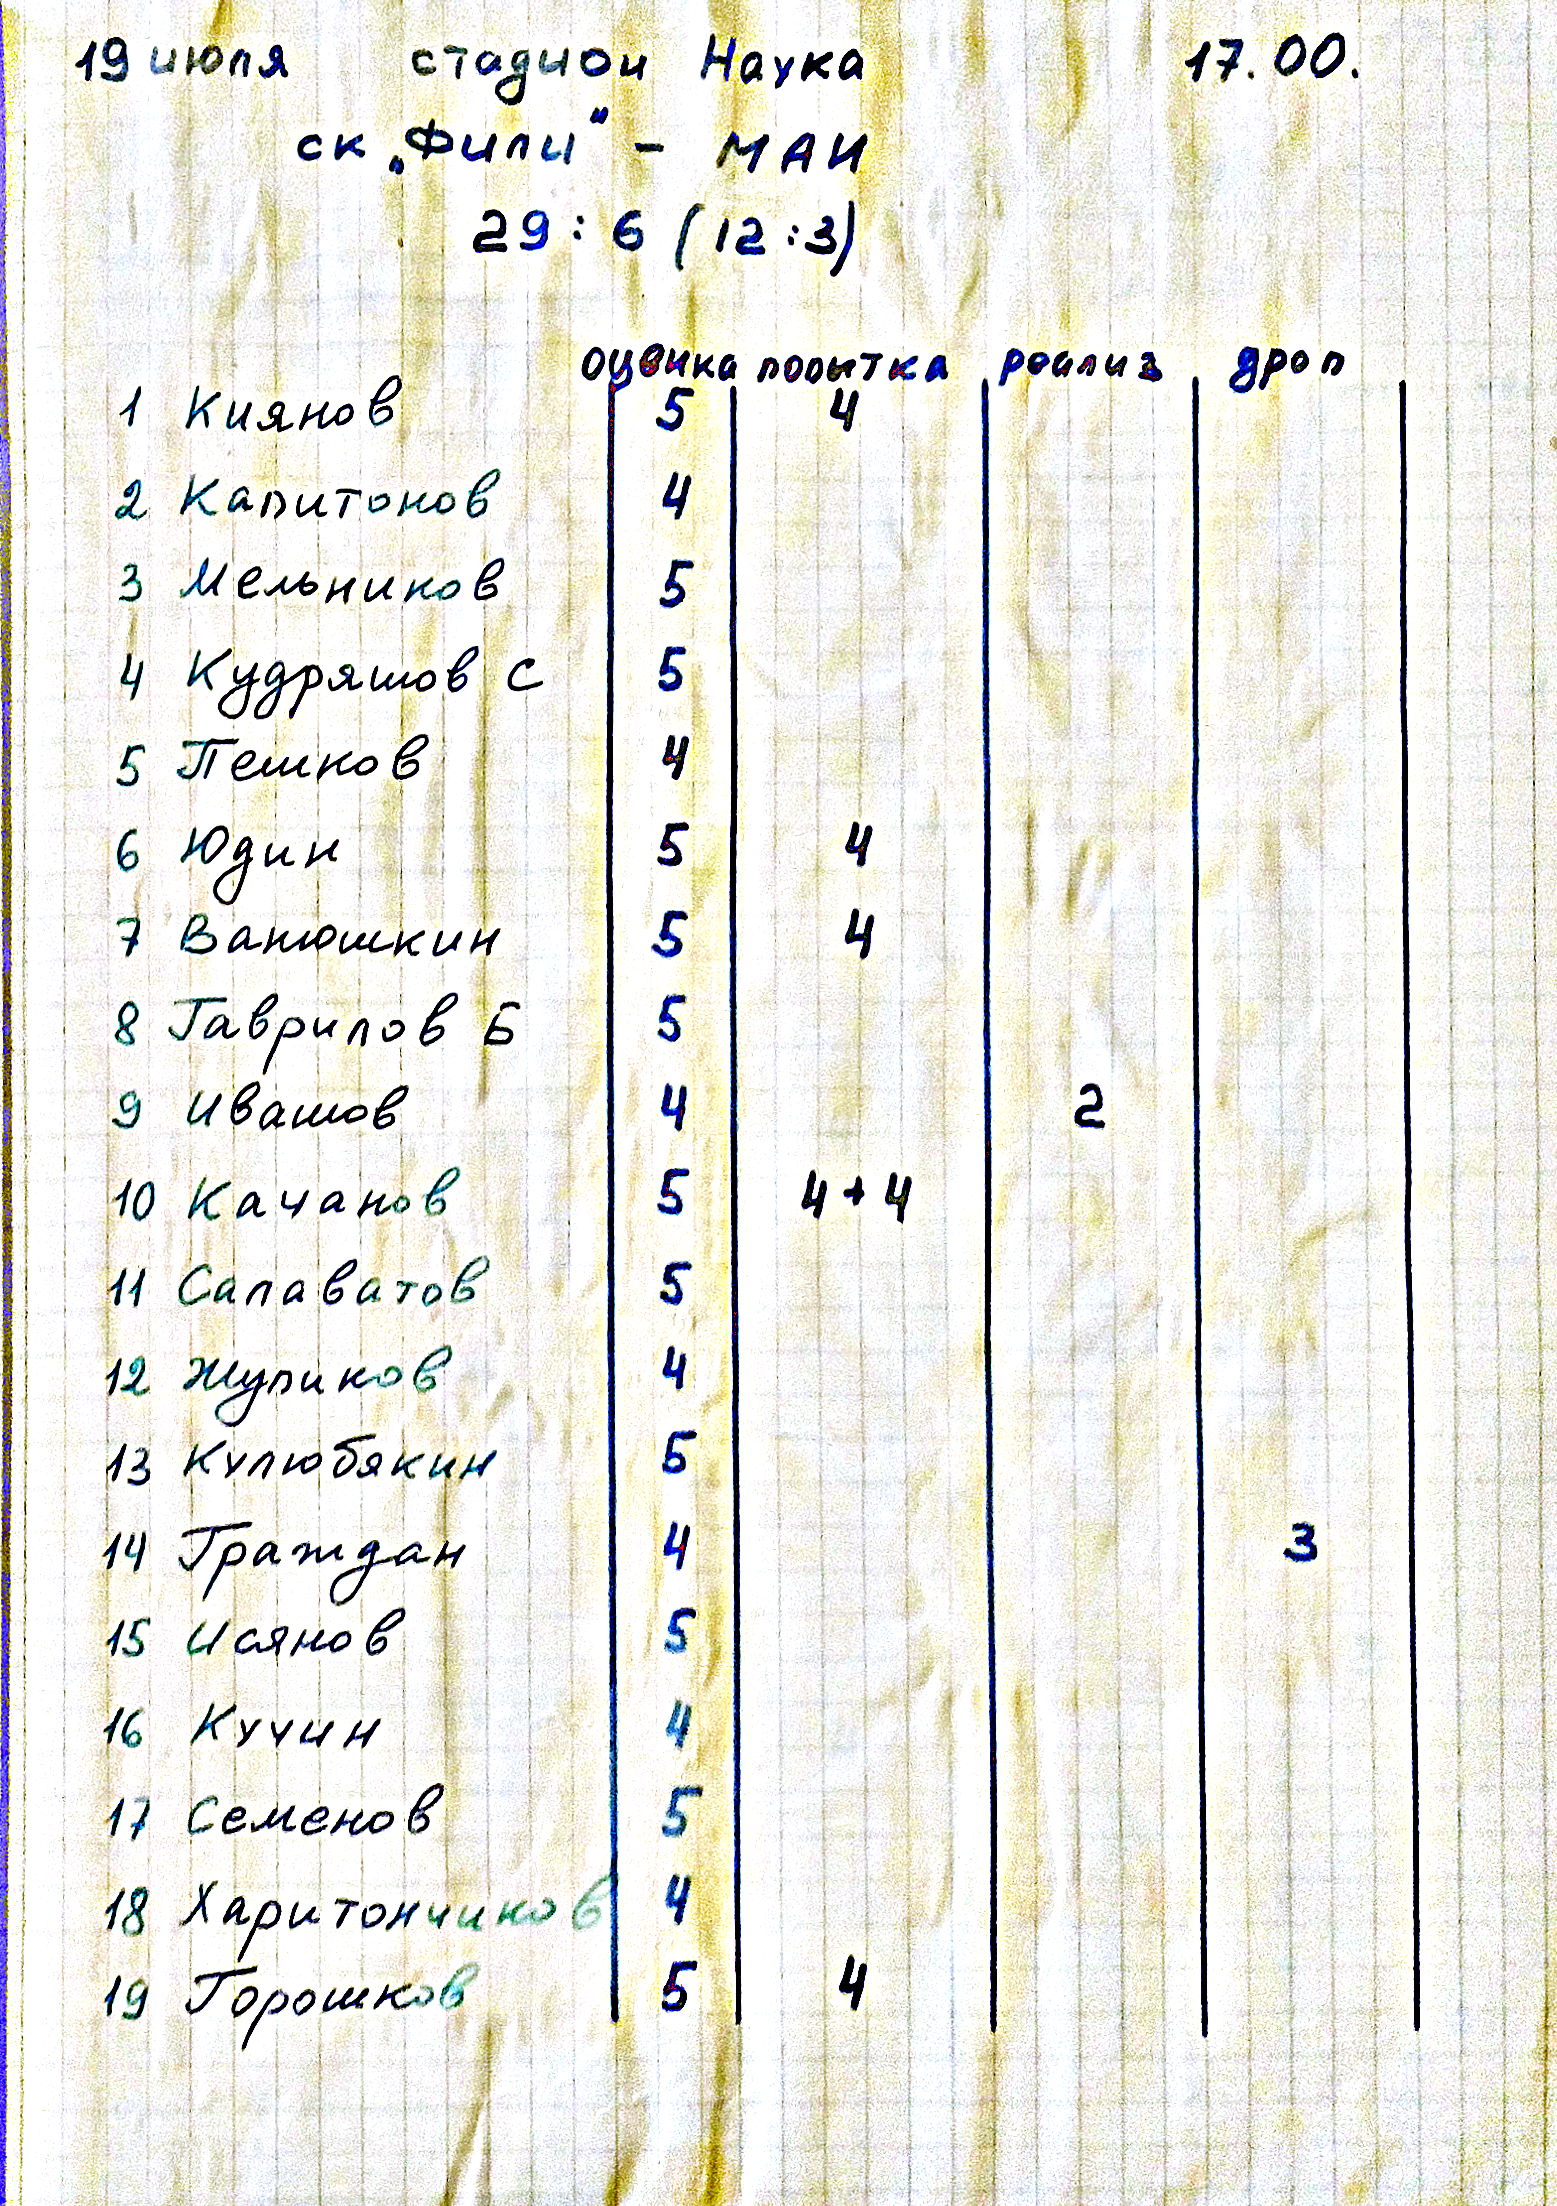 19 июля стадион Наука 17.00.
ск „Фили" - МАИ
29:6 (12:3)
оценка попытка реализ дроп
1 Киянов 5 4
2 Капитонов 4
3 Мельников 5
4 Кудряшов С 5
5 Пешков 4
6 Юдин 5 4
7 Ванюшкин 5 4
8 Гаврилов Б 5
9 Ивашов 4 2
10 Качанов 5 4+4
11 Салаватов 5
12 Жуликов 4
13 Кулюбякин 5
14 Граждан 4 3
15 Исянов 5
16 Кучин 4
17 Семенов 5
18 Харитончиков 4
19 Горошков 5 4